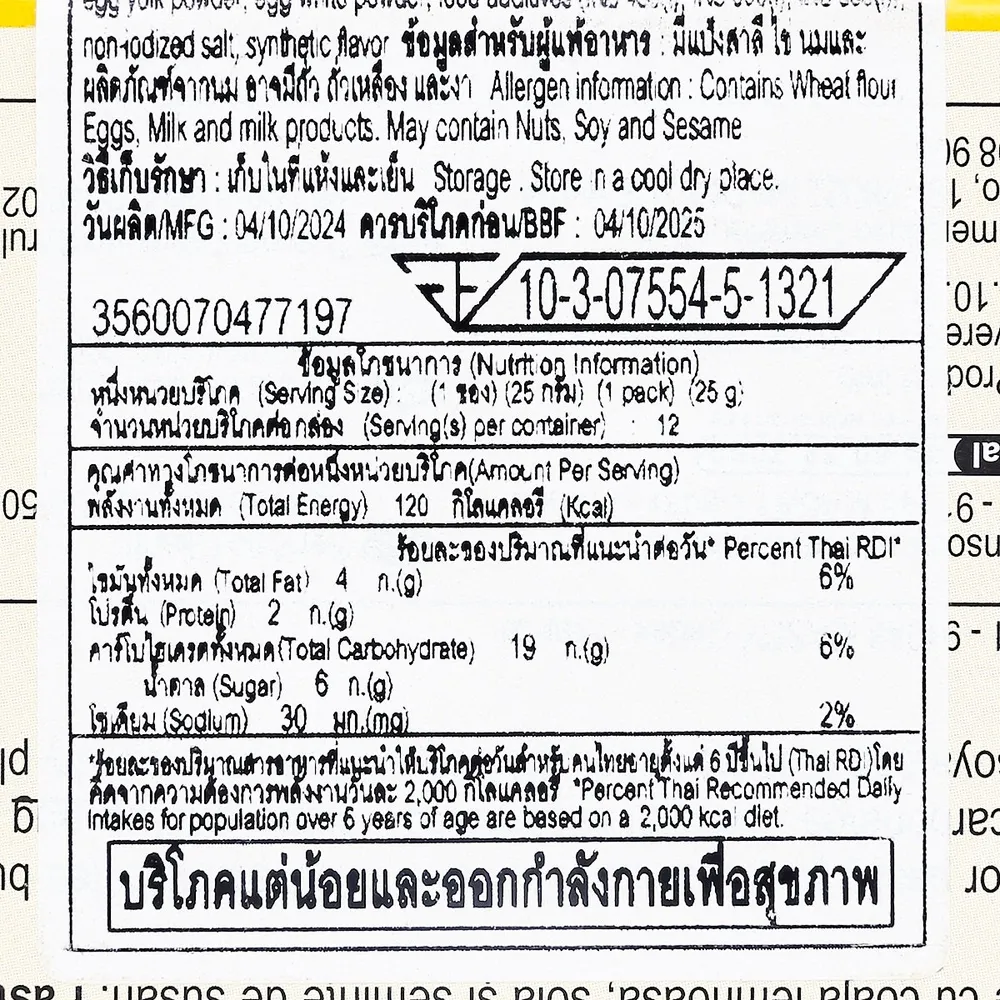 non-iodized salt, synthetic flavor ข้อมูลสำหรับผู้แพ้อาหาร : มีแป้งสาลี ไข่ นมและ
ผลิตภัณฑ์จากนม อาจมีถั่ว ถั่วเหลือง และงา Allergen information : Contains Wheat flour
Eggs, Milk and milk products. May contain Nuts, Soy and Sesame
วิธีเก็บรักษา : เก็บในที่แห้งและเย็น Storage . Store in a cool dry place.
วันผลิต/MFG : 04/10/2024 ควรบริโภคก่อน/BBF : 04/10/2025
10-3-07554-5-1321
3560070477197
ข้อมูลโภชนาการ (Nutrition Information)
หนึ่งหน่วยบริโภค (Serving Size) : (1 ซอง) (25 กรัม) (1 pack) (25 g)
จำนวนหน่วยบริโภคต่อกล่อง (Serving(s) per container) : 12
คุณค่าทางโภชนาการต่อหนึ่งหน่วยบริโภค(Amount Per Serving)
พลังงานทั้งหมด (Total Energy) 120 กิโลแคลอรี (Kcal)
ร้อยละของปริมาณที่แนะนำต่อวัน* Percent Thai RDI*
ไขมันทั้งหมด (Total Fat) 4 ก.(g) 6%
โปรตีน (Protein) 2 ก.(g)
คาร์โบไฮเดรตทั้งหมด(Total Carbohydrate) 19 ก.(g) 6%
น้ำตาล (Sugar) 6 ก.(g)
โซเดียม (Sodium) 30 มก.(mg) 2%
*ร้อยละของปริมาณสารอาหารที่แนะนำให้บริโภคต่อวันสำหรับคนไทยอายุตั้งแต่ 6 ปีขึ้นไป (Thai RDI)โดย
คิดจากความต้องการพลังงานวันละ 2,000 กิโลแคลอรี *Percent Thai Recommended Daily
Intakes for population over 6 years of age are based on a 2,000 kcal diet.
บริโภคแต่น้อยและออกกำลังกายเพื่อสุขภาพ